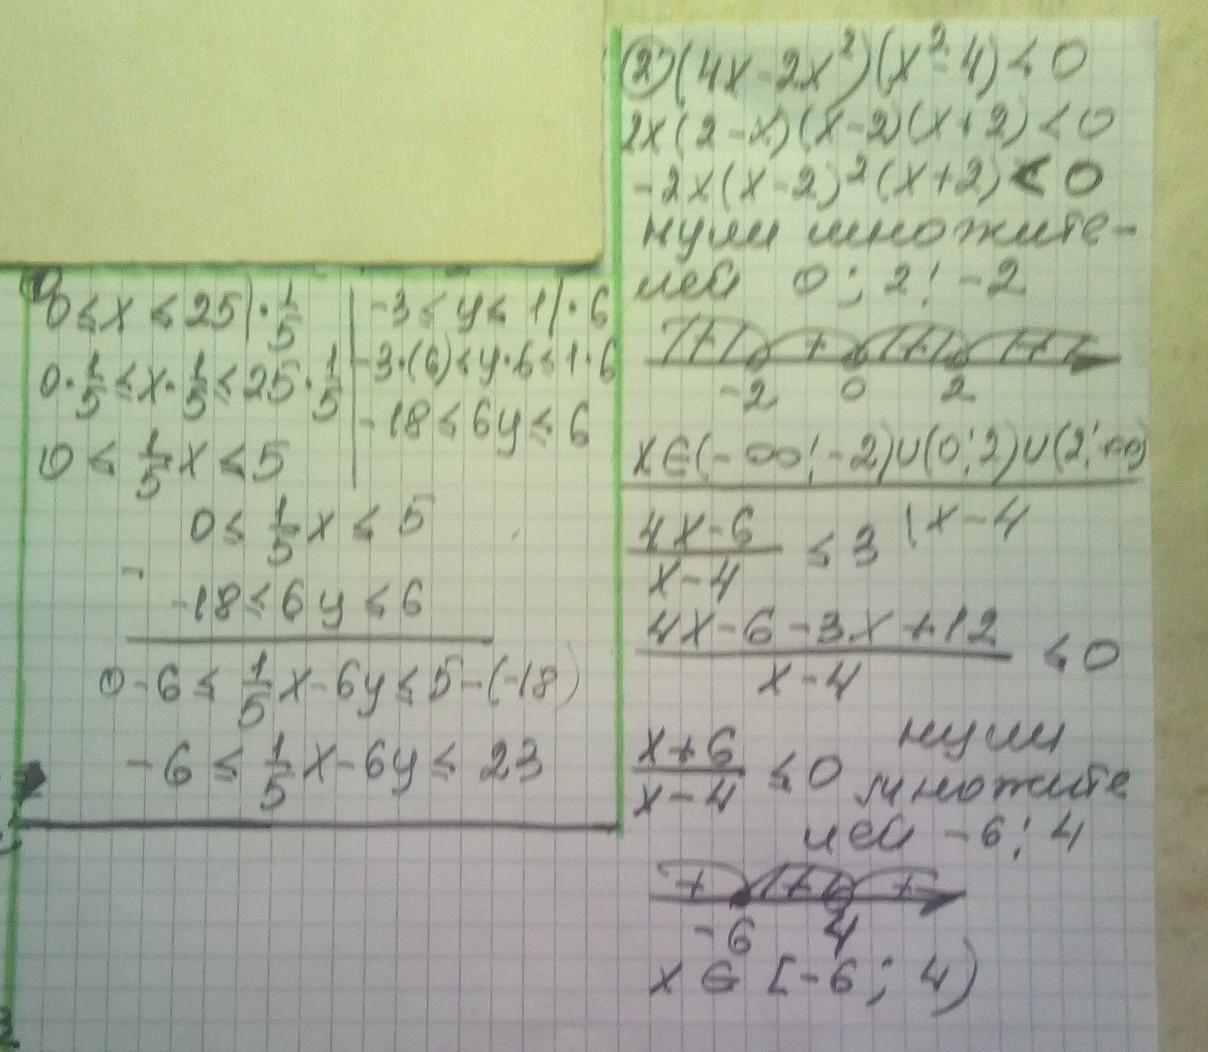 1) 0 ≤ x ≤ 25 | · 1/5
0 · 1/5 ≤ x · 1/5 ≤ 25 · 1/5
0 ≤ 1/5 x ≤ 5
-3 ≤ y ≤ 1 | · 6
-3·(6) ≤ y·6 ≤ 1·6
-18 ≤ 6y ≤ 6
0 ≤ 1/5 x ≤ 5
-
-18 ≤ 6y ≤ 6
0-6 ≤ 1/5 x - 6y ≤ 5-(-18)
-6 ≤ 1/5 x - 6y ≤ 23
2) (4x-2x²)(x²-4) < 0
2x(2-x)(x-2)(x+2) < 0
-2x(x-2)²(x+2) < 0
нули множите-
лей 0; 2; -2
- + - -
-2 0 2
x∈(-∞;-2)∪(0;2)∪(2;∞)
(4x-6)/(x-4) ≤ 3 | x-4
(4x-6-3x+12)/(x-4) ≤ 0
(x+6)/(x-4) ≤ 0 нули
множите
лей -6; 4
+ - +
-6 4
x ∈ [-6; 4)